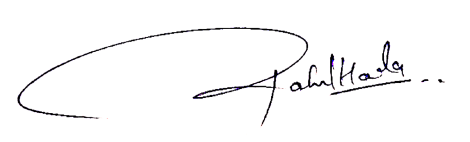 Rahul Hada